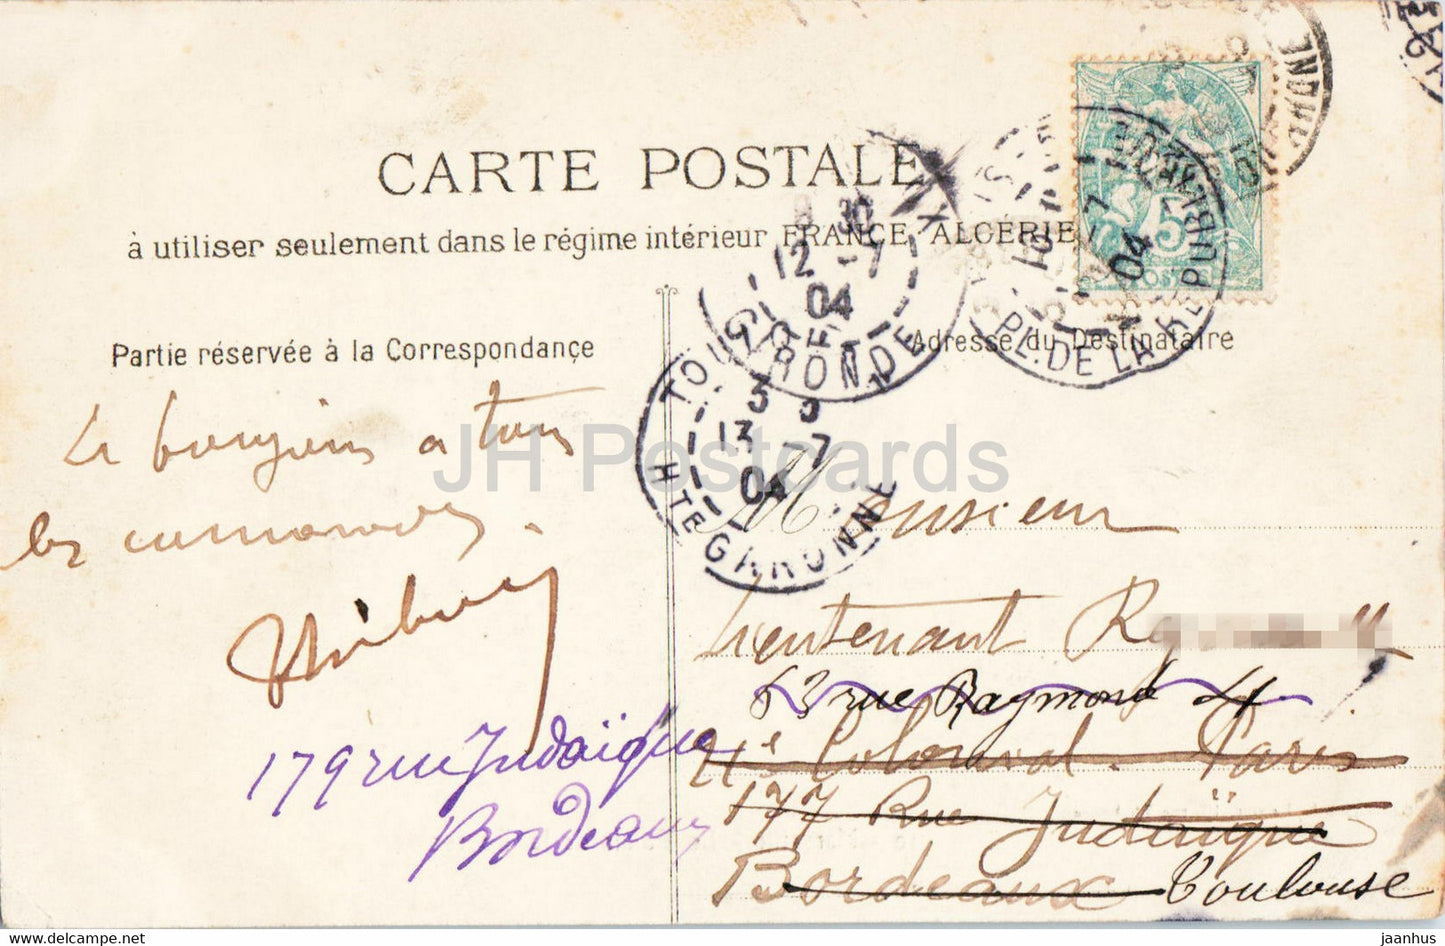 CARTE POSTALE
à utiliser seulement dans le régime intérieur FRANCE, ALGÉRIE
Partie réservée à la Correspondance
Adresse du Destinataire
Le bonjour a tous
les camarades.
179 rue Judaïque
Bordeaux
Monsieur
Lieutenant
63 rue Raymond 4
4e Colonial. Paris
177 Rue Judaïque
Bordeaux Toulouse
8 30
12 -7
04
GIRONDE
TOULOUSE
13 -7
04
HTE GARONNE
PL. DE LA REPUBLIQUE
04
5
POSTES
JH Postcards
hippostcard
jaanhus